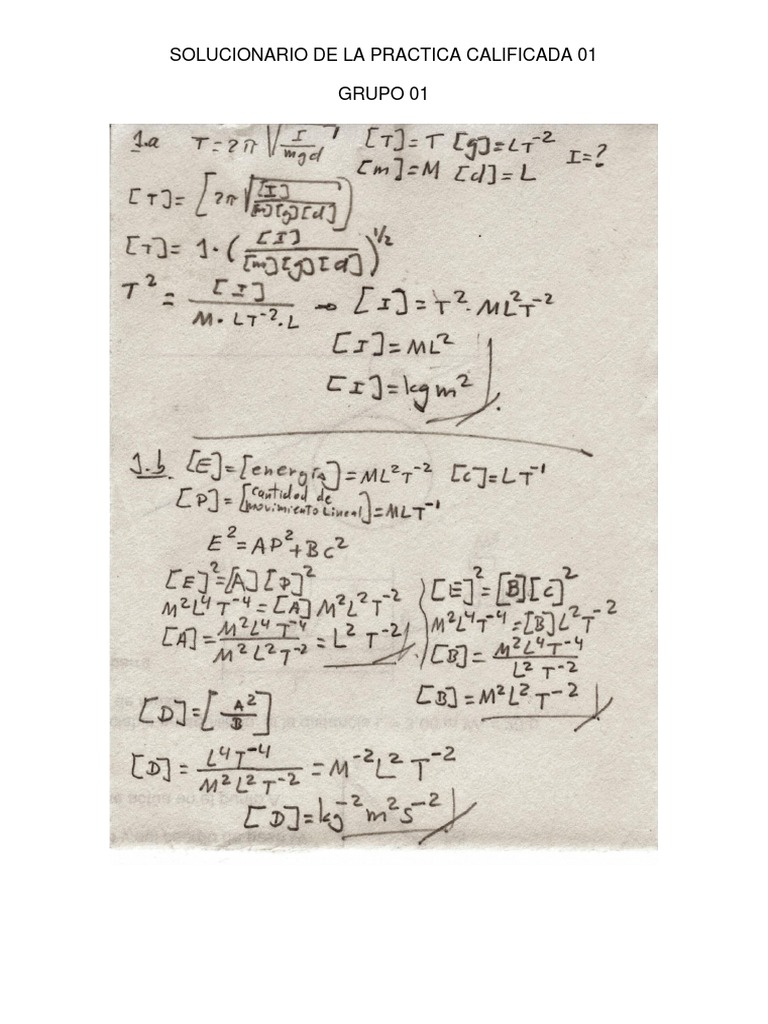 SOLUCIONARIO DE LA PRACTICA CALIFICADA 01
GRUPO 01
1.a T=2π√(I/mgd) [T]=T [g]=LT⁻² I=?
[m]=M [d]=L
[T]=[2π√([I]/[m][g][d])]
[T]=1·([I]/[m][g][d])^1/2
T²=[I]/M·LT⁻²·L → [I]=T²·ML²T⁻²
[I]=ML²
[I]=kgm²
1.b. [E]=[energía]=ML²T⁻² [c]=LT⁻¹
[P]=[cantidad de movimiento lineal]=MLT⁻¹
E²=AP²+Bc²
[E]²=[A][P]²
M²L⁴T⁻⁴=[A]M²L²T⁻²
[A]=M²L⁴T⁻⁴/M²L²T⁻²=L²T⁻²
[E]²=[B][c]²
M²L⁴T⁻⁴=[B]L²T⁻²
[B]=M²L⁴T⁻⁴/L²T⁻²
[B]=M²L²T⁻²
[D]=[A²/B]
[D]=L⁴T⁻⁴/M²L²T⁻²=M⁻²L²T⁻²
[D]=kg⁻²m²s⁻²